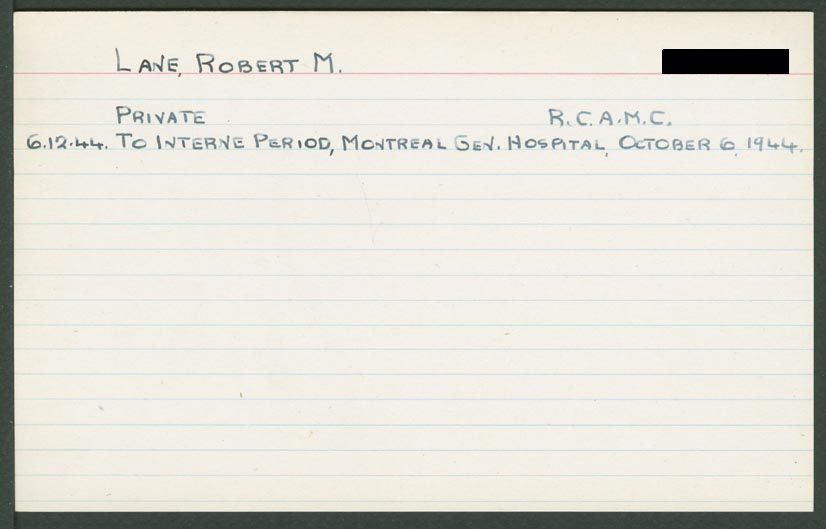 LANE, ROBERT M.
PRIVATE R.C.A.M.C.
6.12.44. TO INTERNE PERIOD, MONTREAL GEN. HOSPITAL, OCTOBER 6, 1944.